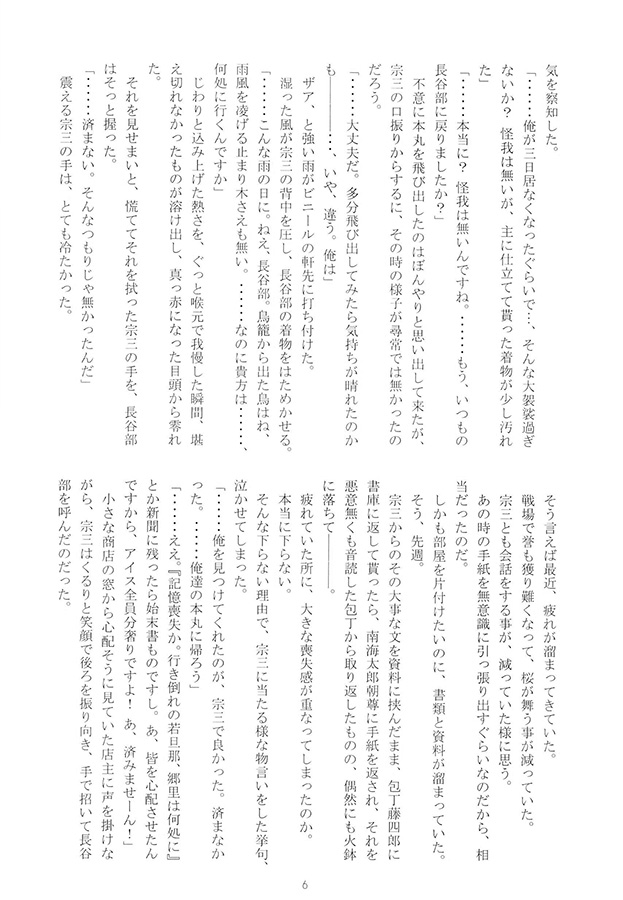 気を察知した。
「‥‥‥俺が三日居なくなったぐらいで…、そんな大袈裟過ぎ
ないか? 怪我は無いが、主に仕立てて貰った着物が少し汚れ
た」
「‥‥‥本当に? 怪我は無いんですね。‥‥‥もう、いつもの
長谷部に戻りましたか?」
不意に本丸を飛び出したのはぼんやりと思い出して来たが、
宗三の口振りからするに、その時の様子が尋常では無かったの
だろう。
「‥‥‥大丈夫だ。多分飛び出してみたら気持ちが晴れたのか
も―――‥‥、いや、違う。俺は」
ザア、と強い雨がビニールの軒先に打ち付けた。
湿った風が宗三の背中を圧し、長谷部の着物をはためかせる。
「‥‥‥こんな雨の日に。ねえ、長谷部。鳥籠から出た鳥はね、
雨風を凌げる止まり木さえも無い。‥‥‥なのに貴方は‥‥‥、
何処に行くんですか」
じわりと込み上げた熱さを、ぐっと喉元で我慢した瞬間、堪
え切れなかったものが溶け出し、真っ赤になった目頭から零れ
た。
それを見せまいと、慌ててそれを拭った宗三の手を、長谷部
はそっと握った。
「‥‥‥済まない。そんなつもりじゃ無かったんだ」
震える宗三の手は、とても冷たかった。
そう言えば最近、疲れが溜まってきていた。
戦場で誉も獲り難くなって、桜が舞う事が減っていた。
宗三とも会話をする事が、減っていた様に思う。
あの時の手紙を無意識に引っ張り出すぐらいなのだから、相
当だったのだ。
しかも部屋を片付けたいのに、書類と資料が溜まっていた。
そう、先週。
宗三からのその大事な文を資料に挟んだまま、包丁藤四郎に
書庫に返して貰ったら、南海太郎朝尊に手紙を返され、それを
悪意無くも音読した包丁から取り返したものの、偶然にも火鉢
に落ちて―――。
疲れていた所に、大きな喪失感が重なってしまったのか。
本当に下らない。
そんな下らない理由で、宗三に当たる様な物言いをした挙句、
泣かせてしまった。
「‥‥‥俺を見つけてくれたのが、宗三で良かった。済まなか
った。‥‥‥俺達の本丸に帰ろう」
「‥‥‥ええ。『記憶喪失か。行き倒れの若旦那、郷里は何処に』
とか新聞に残ったら始末書ものですし。あ、皆を心配させたん
ですから、アイス全員分奢りですよ! あ、済みませーん!」
小さな商店の窓から心配そうに見ていた店主に声を掛けな
がら、宗三はくるりと笑顔で後ろを振り向き、手で招いて長谷
部を呼んだのだった。
6